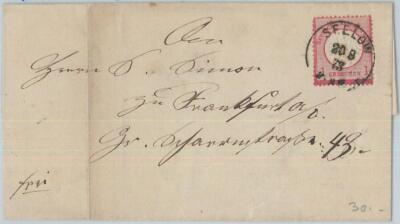 An
SEELOW
20 8
73
Herrn S. Simon
zu Frankfurt a/o.
Gr. Scharrnstraße 43.
frei
30.-